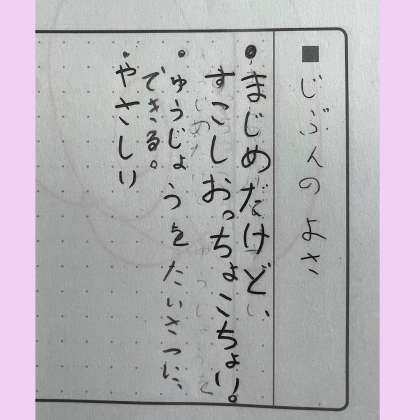 ■じぶんのよさ
・まじめだけど、
すこしおっちょこちょい。
・ゆうじょうをたいせつに、
できる。
・やさしい